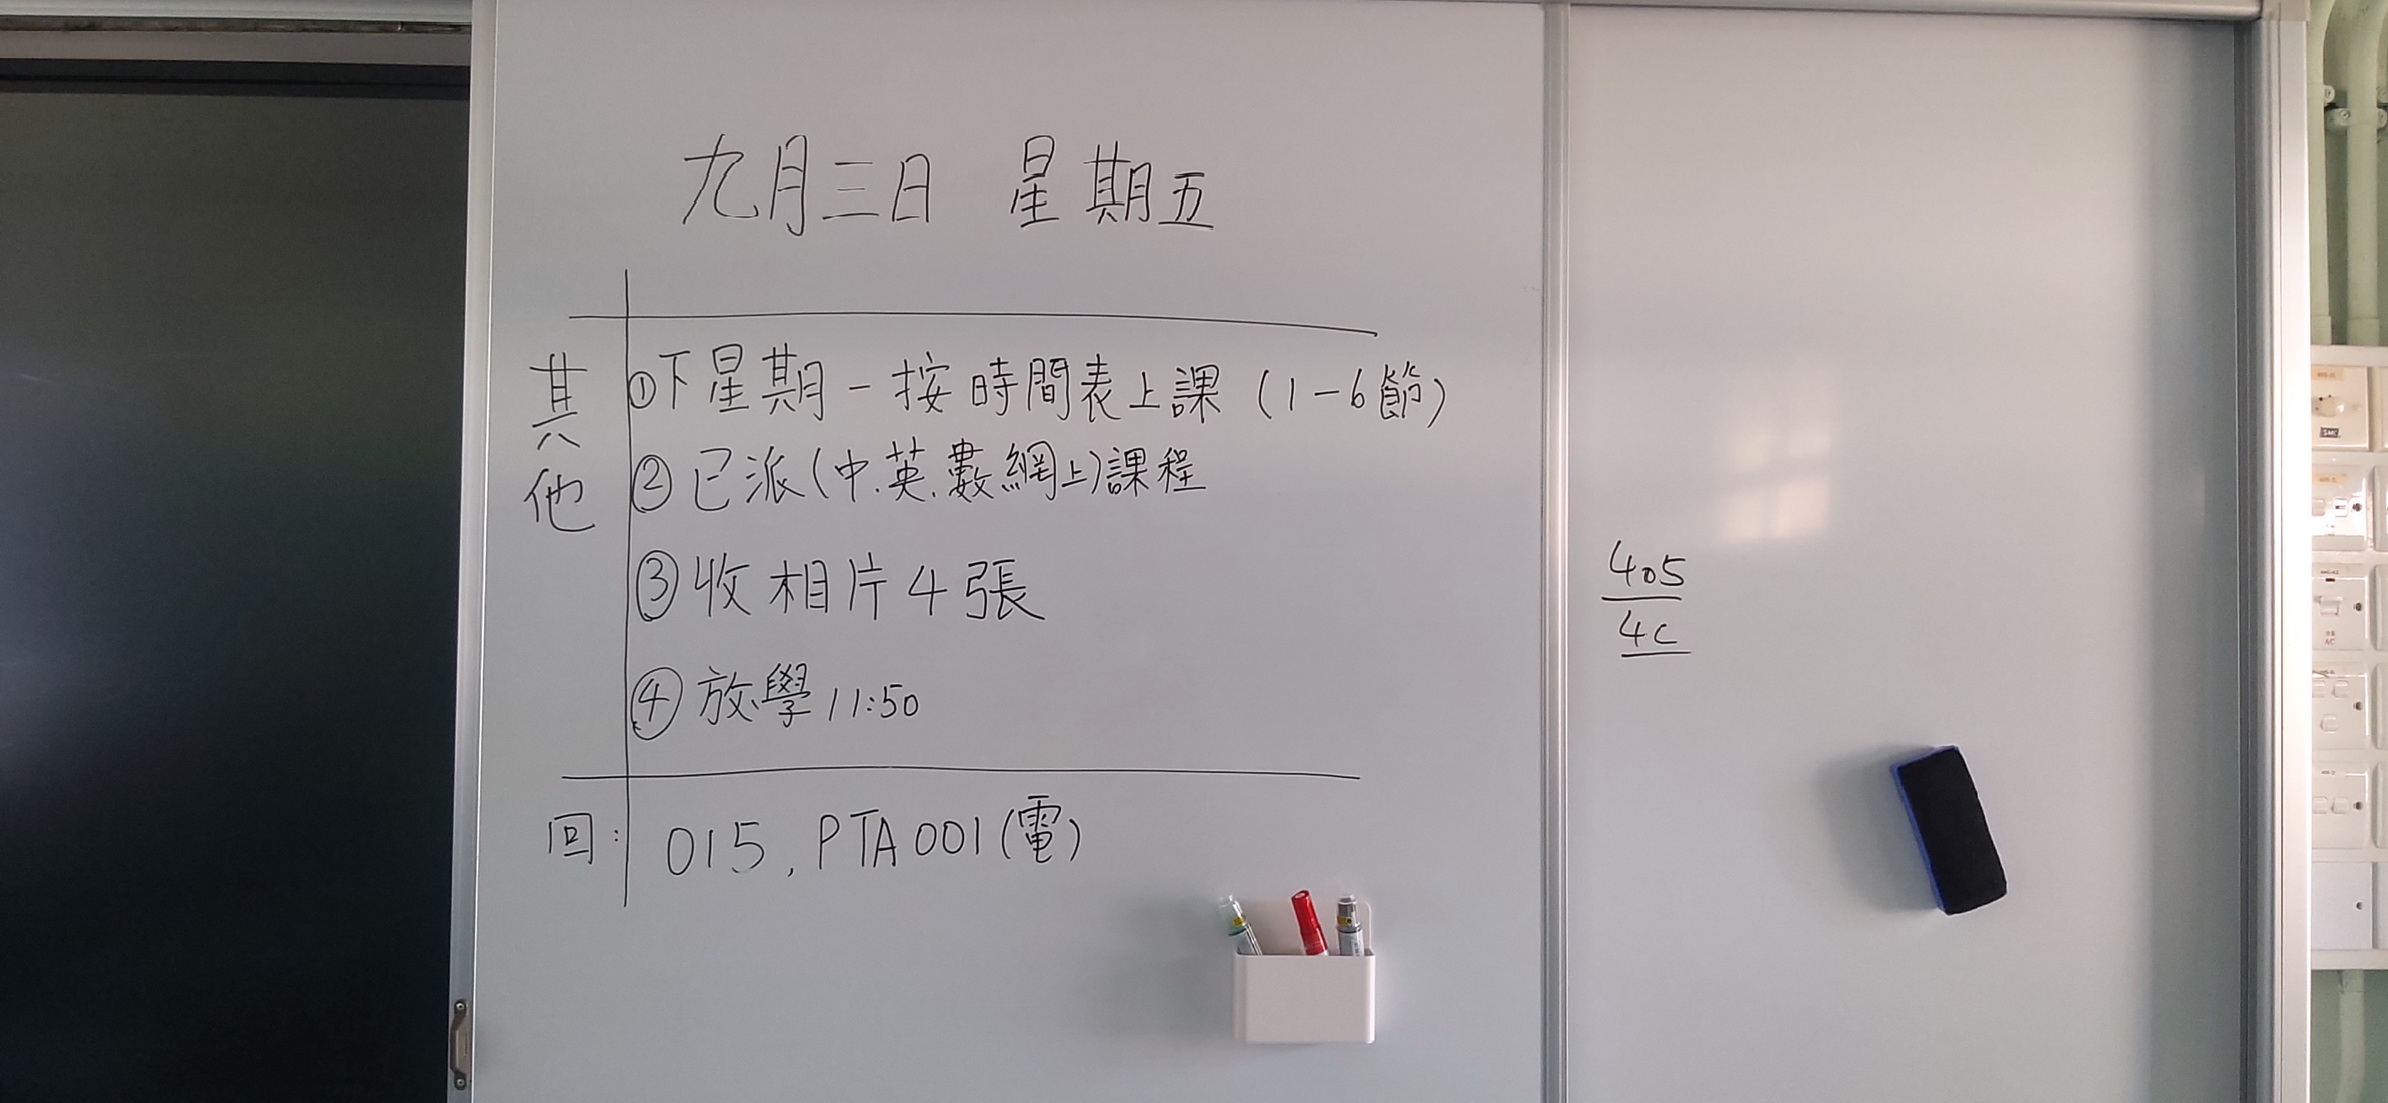 九月三日 星期五
其他
①下星期一按時間表上課（1-6節）
②已派(中、英、數網上)課程
③收相片4張
④放學11:50
回: 015, PTA001(電)
405
4C